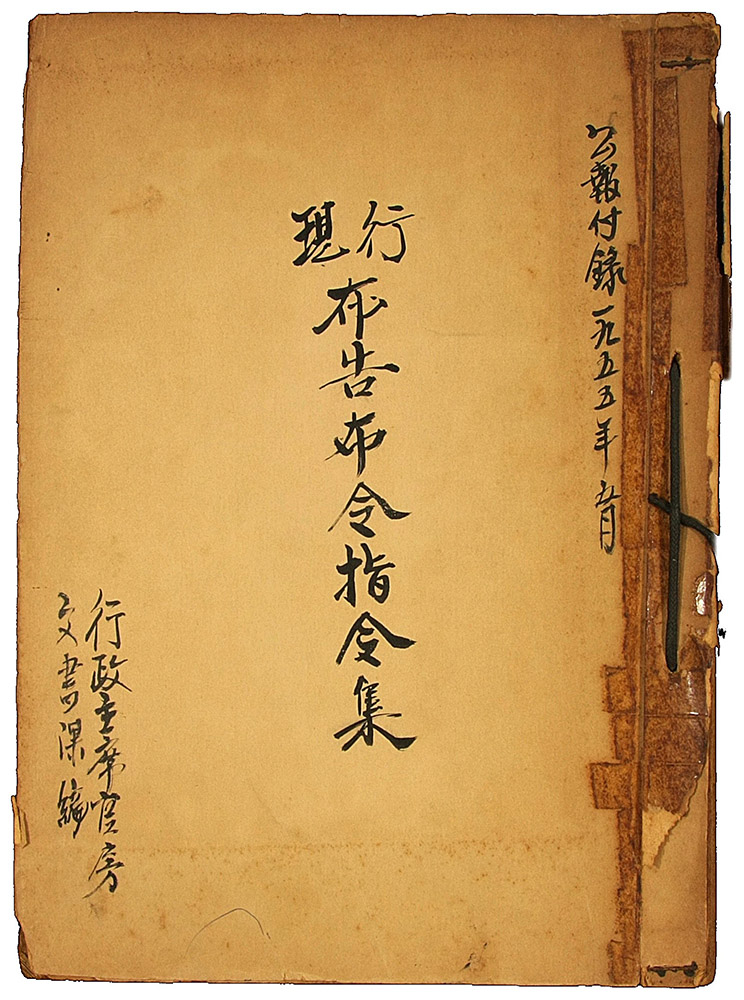 公報付録 一九五五年 五月
現行
布告布令指令集
行政主席官房
文書課編